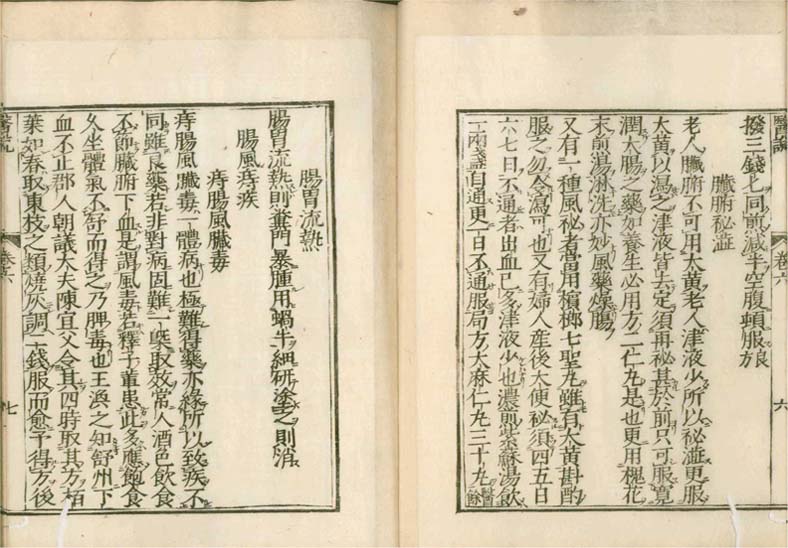 醫説
卷六
六
撥三錢匕同前減半空腹頓服良
臟腑秘澁
老人臟腑不可用大黃老人津液少所以秘澁更服
大黃以瀉之津液皆去定須再秘甚於前只可服寬
潤大腸之藥如養生必用方二仁丸是也更用槐花
末煎湯淋洗亦妙風藥燥腸
又有一種風秘者當用檳榔七聖丸雖有大黃斟酌
服之勿令瀉可也又有婦人産後大便秘須四五日
六七日不通者出血已多津液少也濃煎紫蘇湯飲
一兩盞自通更一日不通服局方大麻仁丸三十丸醫餘
腸胃流熱
腸胃流熱則糞門暴腫用蝸牛細研塗之則消
腸風痔疾
痔腸風臟毒
痔腸風臟毒一體病也極難得藥亦緣所以致疾不
同雖良藥若非對病固難一槩取效常人酒色飲食
不節臟腑下血是謂風毒若釋子輩患此多應飽食
久坐體氣不舒而得之乃脾毒也王渙之知舒州下
血不止郡人朝議大夫陳宜父令其四時取其方栢
葉如春取東枝之類燒灰調二錢服而愈予得方後
醫説
卷六
七